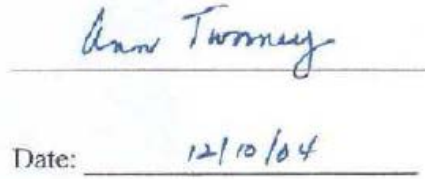 Ann Twomey
Date: 12/10/04